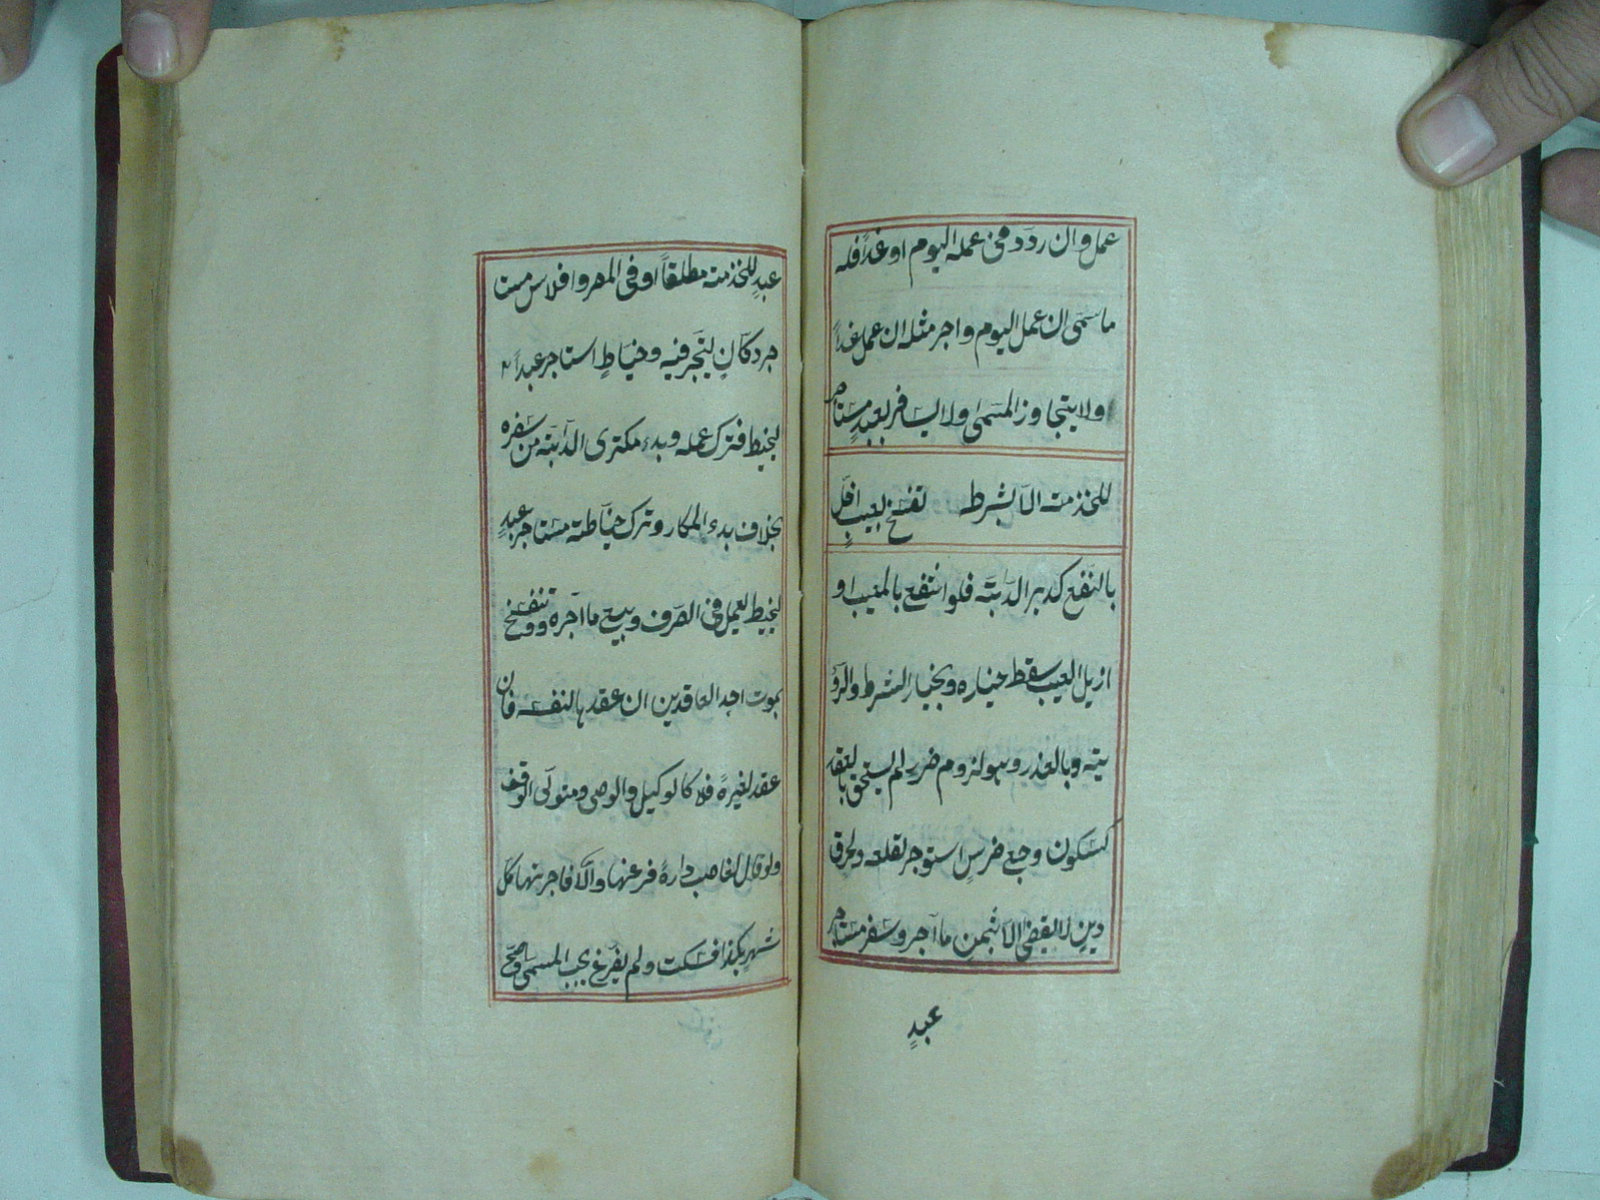 عمل وان ردد فى عمله اليوم او غداً فله
ما سمى ان عمل اليوم واجر مثله ان عمل غداً
ولا يتجاوز المسمى ولا يسافر بعبدٍ مستاجر
للخذمته الا بشرط تفسخ بعيبٍ اخل
بالنفع كدبر الدابته فلو انتفع بالمعيب او
ازيل العيب سقط خياره وبخيار الشرط والرؤ
يته وبالعذر وهو لزوم ضررٍ لم يستحق بالعقد
كسكون وجع ضرسٍ استوجر لقلعه ولحوق
دينٍ لا يقضى الا بثمن ما آجر وسفر مستاجر
عبدٍ
عبدٍ للخذمته مطلقاً او فى المصر وافلاس مستا
جر دكانٍ ليتجر فيه وخياطٍ استاجر عبداً
ليخيط فترك عمله وبدء مكترى الدابته من سفره
بخلاف بدء المكار وترك خياطته مستاجر عبدٍ
ليخيط ليعمل فى الصرف وبيع ما آجره وتنفسخ
بموت احد العاقدين ان عقدها لنفسه فان
عقد لغيره فلا كالوكيل والوصى ومتولى الوقف
ولو قال لغاصب داره فرغها والا فاجرتها كل
شهرٍ بكذا فسكت ولم يفرغ يجب المسمى وصح